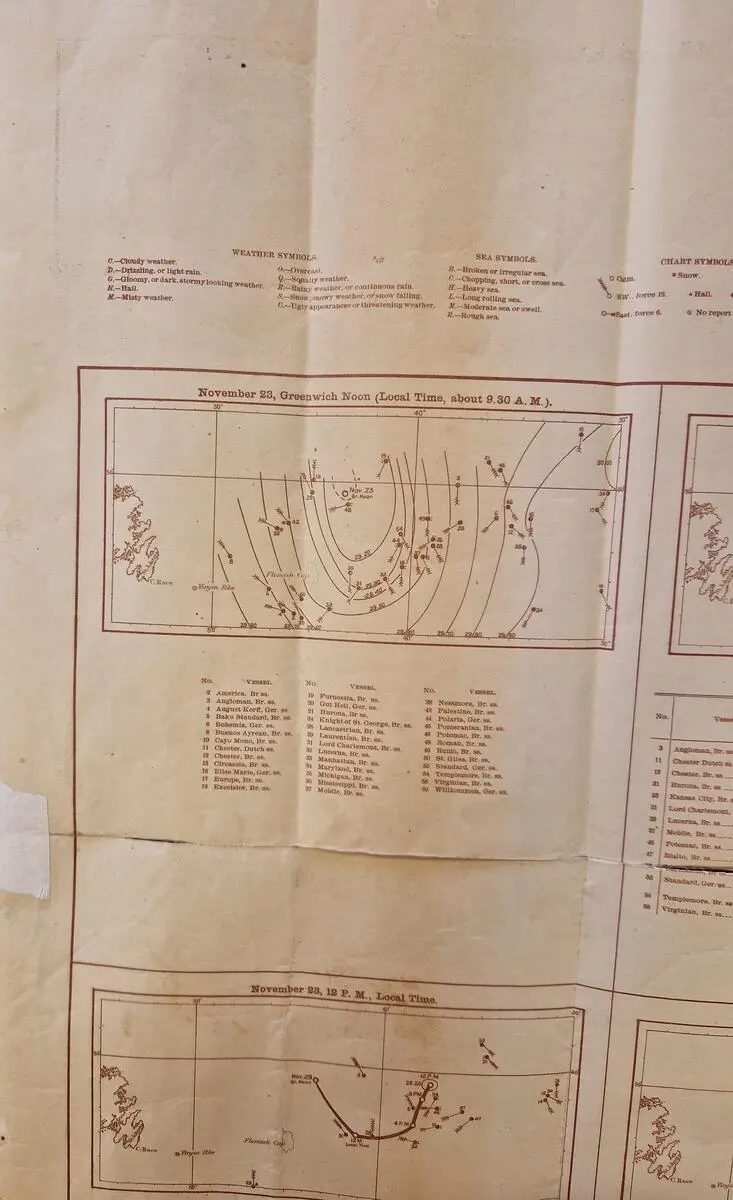 WEATHER SYMBOLS.
C.—Cloudy weather.
D.—Drizzling, or light rain.
G.—Gloomy, or dark, stormy looking weather.
H.—Hail.
M.—Misty weather.
O.—Overcast.
Q.—Squally weather.
R.—Rainy weather, or continuous rain.
S.—Snow, snowy weather, or snow falling.
U.—Ugly appearances or threatening weather.
SEA SYMBOLS.
B.—Broken or irregular sea.
C.—Chopping, short, or cross sea.
H.—Heavy sea.
L.—Long rolling sea.
M.—Moderate sea or swell.
R.—Rough sea.
CHART SYMBOLS
Calm.
NW., force 12.
East, force 6.
Snow.
Hail.
No report
November 23, Greenwich Noon (Local Time, about 9.30 A. M.).
50°
40°
30°
Nov. 23
Gr. Noon
C. Race
Virgin Rks
Flemish Cap
No. VESSEL.
2 America, Br. ss.
3 Angloman, Br. ss.
4 August Korff, Ger. ss.
5 Baku Standard, Br. ss.
6 Bohemia, Ger. ss.
8 Buenos Ayrean, Br. ss.
10 Cayo Mono, Br. ss.
11 Chester, Dutch ss.
12 Chester, Br. ss.
13 Circassia, Br. ss.
16 Elise Marie, Ger. ss.
17 Europe, Br. ss.
18 Excelsior, Br. ss.
No. VESSEL.
19 Furnessia, Br. ss.
20 Gut Heil, Ger. ss.
21 Hurona, Br ss.
24 Knight of St. George, Br. ss.
28 Lancastrian, Br. ss.
29 Laurentian, Br. ss.
31 Lord Charlemont, Br. ss.
32 Lucerna, Br. ss.
33 Manhattan, Br. ss.
34 Maryland, Br. ss.
35 Michigan, Br. ss.
36 Mississippi, Br. ss.
37 Mobile, Br. ss.
No. VESSEL.
38 Nessmore, Br. ss.
42 Palestine, Br. ss.
44 Polaria, Ger. ss.
45 Pomeranian, Br. ss.
46 Potomac, Br. ss.
48 Roman, Br. ss.
49 Runic, Br. ss.
50 St. Giles, Br. ss.
52 Standard, Ger. ss.
54 Templemore, Br. ss.
58 Virginian, Br. ss.
60 Willkommen, Ger. ss.
No. Vess
3 Angloman, Br. ss
11 Chester Dutch ss
12 Chester, Br. ss
21 Hurona, Br. ss
Kansas City, Br. s
31 Lord Charlemont,
Lucerna, Br. ss
37 Mobile, Br. ss
46 Potomac, Br. ss
47 Rialto, Br. ss
Standard, Ger. ss
54 Templemore, Br. ss
58 Virginian, Br. ss
November 23, 12 P. M., Local Time.
50°
40°
Nov. 23
Gr. Noon
12 P.M
8 P.M
4 P.M.
12 M.
Local Time
C. Race
Virgin Rks
Flemish Cap